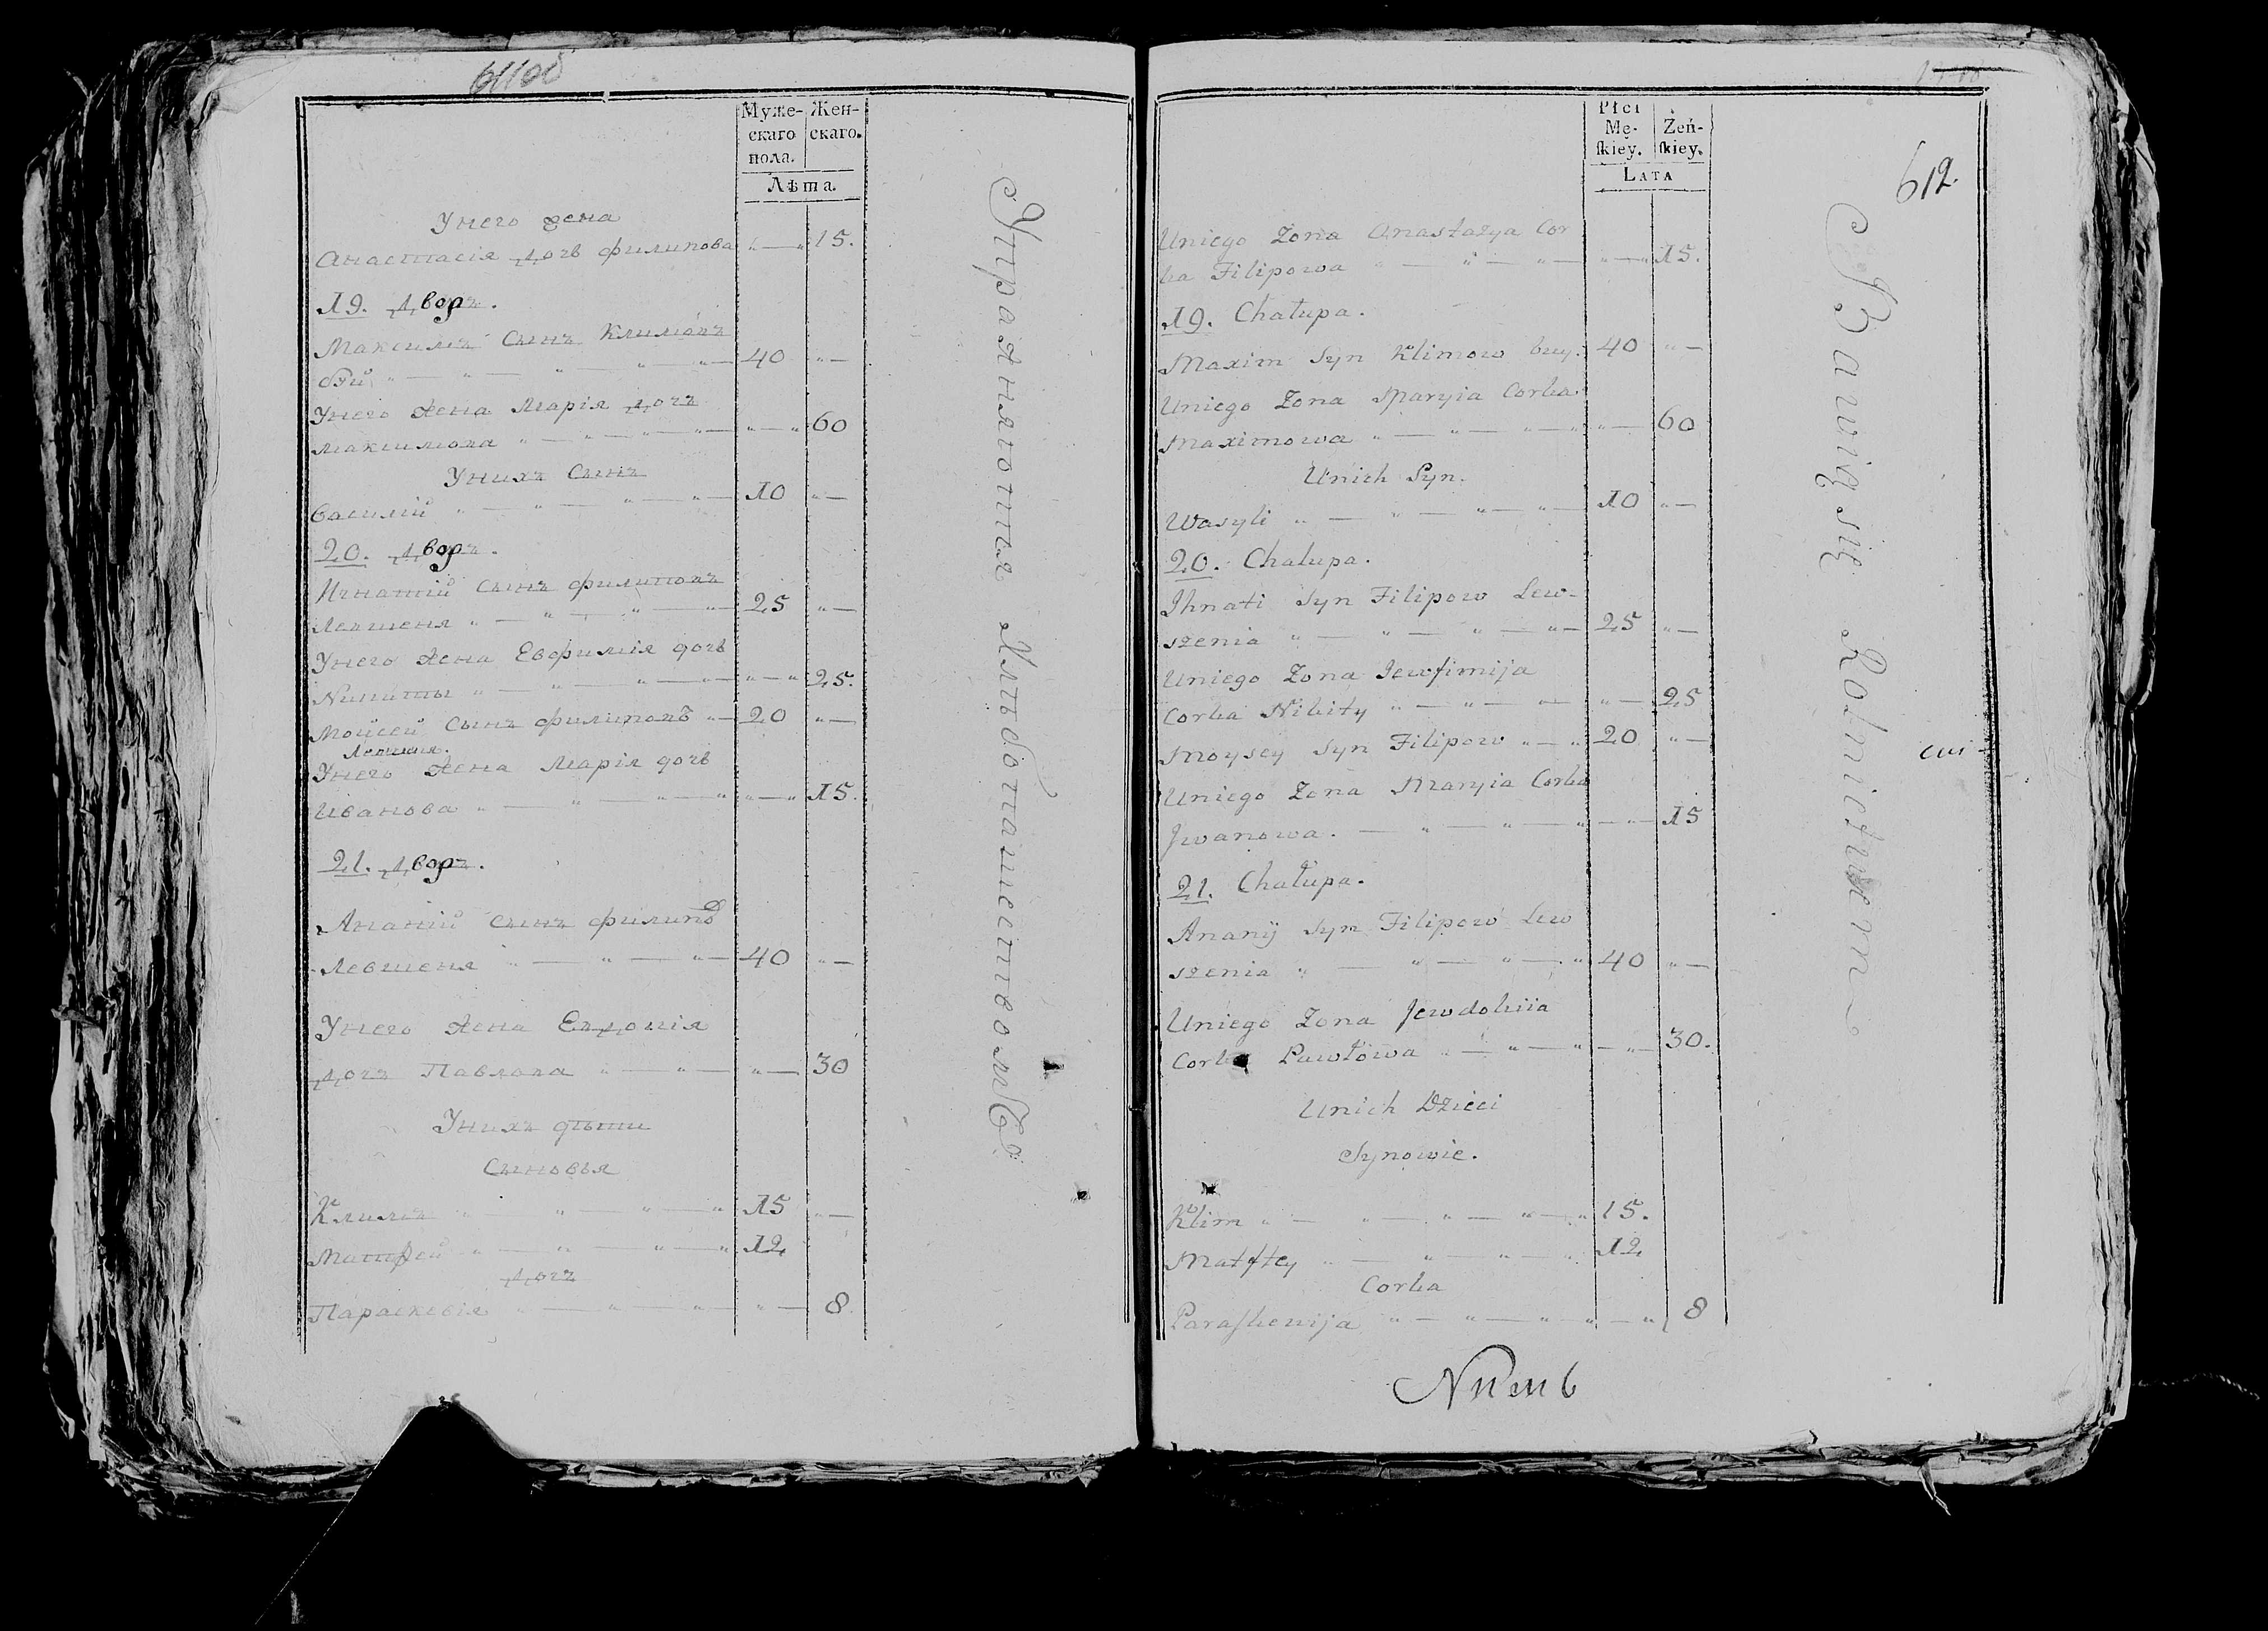 Муже- Жен-
скаго скаго.
пола.
Лѣта.
Унего жена
Анастасія дочь филипова " — " 15.
19. двор.
Максимъ Сынъ Климовъ
" — " — " — " — " — 40 " —
Унего жена Марія дочъ
Максимова " — " — " — " — " — " 60
Унихъ Сынъ
Василій " — " — " — " — 10 " —
20. двор.
Игнатій Сынъ филиповъ
Левшеня " — " — " — " — 25 " —
Унего жена Евфимія дочь
Никиты " — " — " — " — " — " 25.
Мойсей Сынъ филиповъ " — 20 " —
Левшеня.
Унего жена Марія дочь
Иванова " — " — " — " " — " 15.
21. двор.
Ананій сынъ филипо
Левшеня " — " — " — 40 " —
Унего жена Евдокія
дочъ Павлова " — " — " — 30
Унихъ дѣти
Сыновья
Климъ " — " — " — " 15 " —
Матфей " — " — " — " 12
дочъ
Параскевія " — " — " — " — 8.
Упражняютця Хлѣбопашествомъ
612.
Płci
Mę- Żeń-
skiey. skiey.
LATA
Uniego Zona Anastazya Cor
ka Filipowa " — " — " — " — " 15.
19. Chałupa.
Maxim Syn Klimow 40 " —
Uniego Zona Maryia Corka
Maximowa " — " — " — " " — 60
Unich Syn.
Wasyli " — " — " — " — 10 " —
20. Chałupa.
Ihnati Syn Filipow Lew-
szenia " — " — " — " — 25 " —
Uniego Zona Jewfimija
Corka Nikity " — " — " — " — 25
Moysey Syn Filipow " — " 20 " —
Uniego Zona Maryia Corka
Jwanowa. — " — " — " — " — 15
21. Chałupa.
Ananÿ Syn Filipow Lew
szenia " — " — " — " 40 " —
Uniego Zona Jewdokiia
Corka Pawłowa " — " — " — " — 30.
Unich Dzieci
Synowie.
Klim " — " — " — " — " 15.
Matftey " — " — " — " 12
Corka
Paraskewija " — " — " — " — " 8
Bawią się Rolnictwem